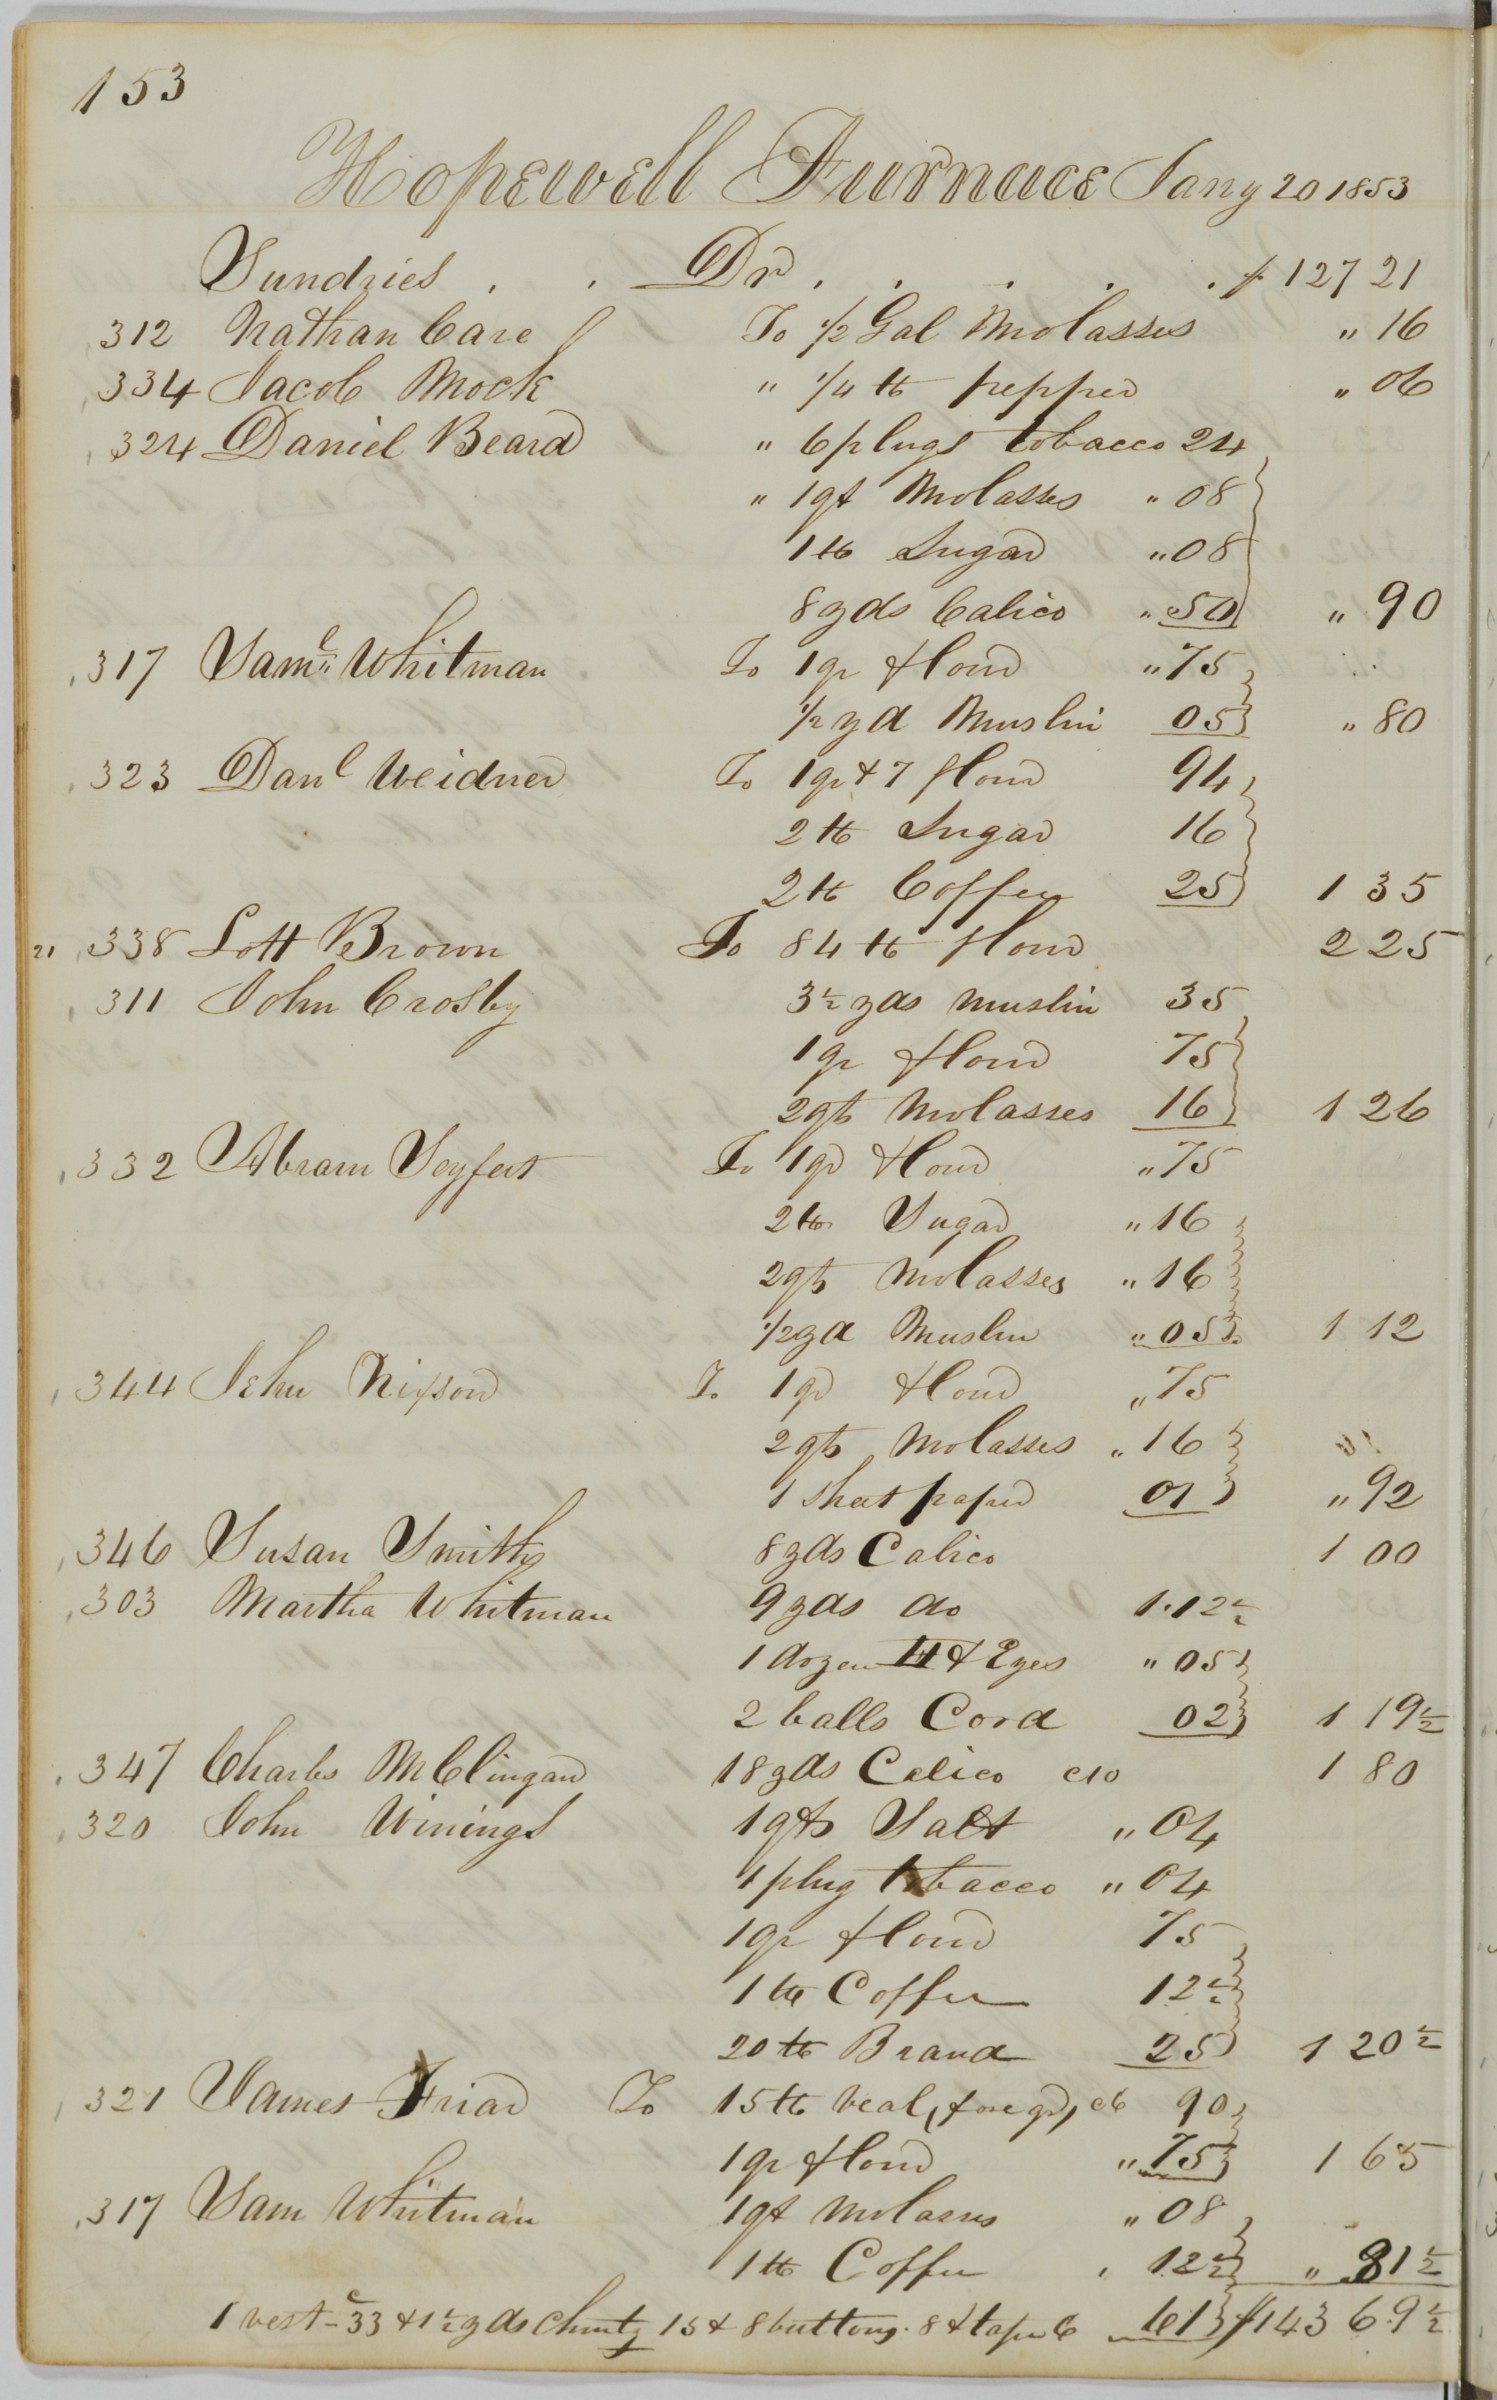 153
Hopewell Furnace Jany 20 1853
Sundries . . Dr . . . . . $ 127 21
312 Nathan Care To 1/2 Gal Molasses " 16
334 Jacob Mock " 1/4 lb pepper " 06
324 Daniel Beard " 6 plugs tobacco 24
" 1 qt Molasses " 08
1 lb Sugar " 08
8 yds Calico " 50 " 90
317 Saml Whitman To 1 qr flour " 75
1/2 yd Muslin 05 " 80
323 Danl Weidner To 1 qr + 7 flour 94
2 lb Sugar 16
2 lb Coffee 25 1 35
21 338 Lott Brown To 84 lb flour 2 25
311 John Crosby 3 1/2 yds muslin 35
1 qr flour 75
2 qts Molasses 16 1 26
332 Abram Seyfert To 1 qr flour " 75
2 lb Sugar " 16
2 qts Molasses " 16
1/2 yd Muslin " 05 1 12
344 Jehu Nixson To 1 qr flour " 75
2 qts Molasses " 16
1 sheet paper 01 " 92
346 Susan Smith 8 yds Calico 1 00
303 Martha Whitman 9 yds do 1.12 1/2
1 dozen H & Eyes " 05
2 balls Cord 02 1 19 1/2
347 Charles McClingan 18 yds Calico c10 1 80
320 John Winings 1 qts Salt " 04
1 plug tobacco " 04
1 qr flour 75
1 lb Coffee 12 1/2
20 lb Brand 25 1 20 1/2
321 James Friar To 15 lb veal, fore qr, c6 90
1 qr flour " 75 1 65
317 Sam Whitman 1 qt Molasses " 08
1 lb Coffee " 12 1/2 " 81 1/2
1 vest - c33 + 1 1/2 yds Chintz 15 + 8 buttons. 8 + tape 6 61 $143 69 1/2